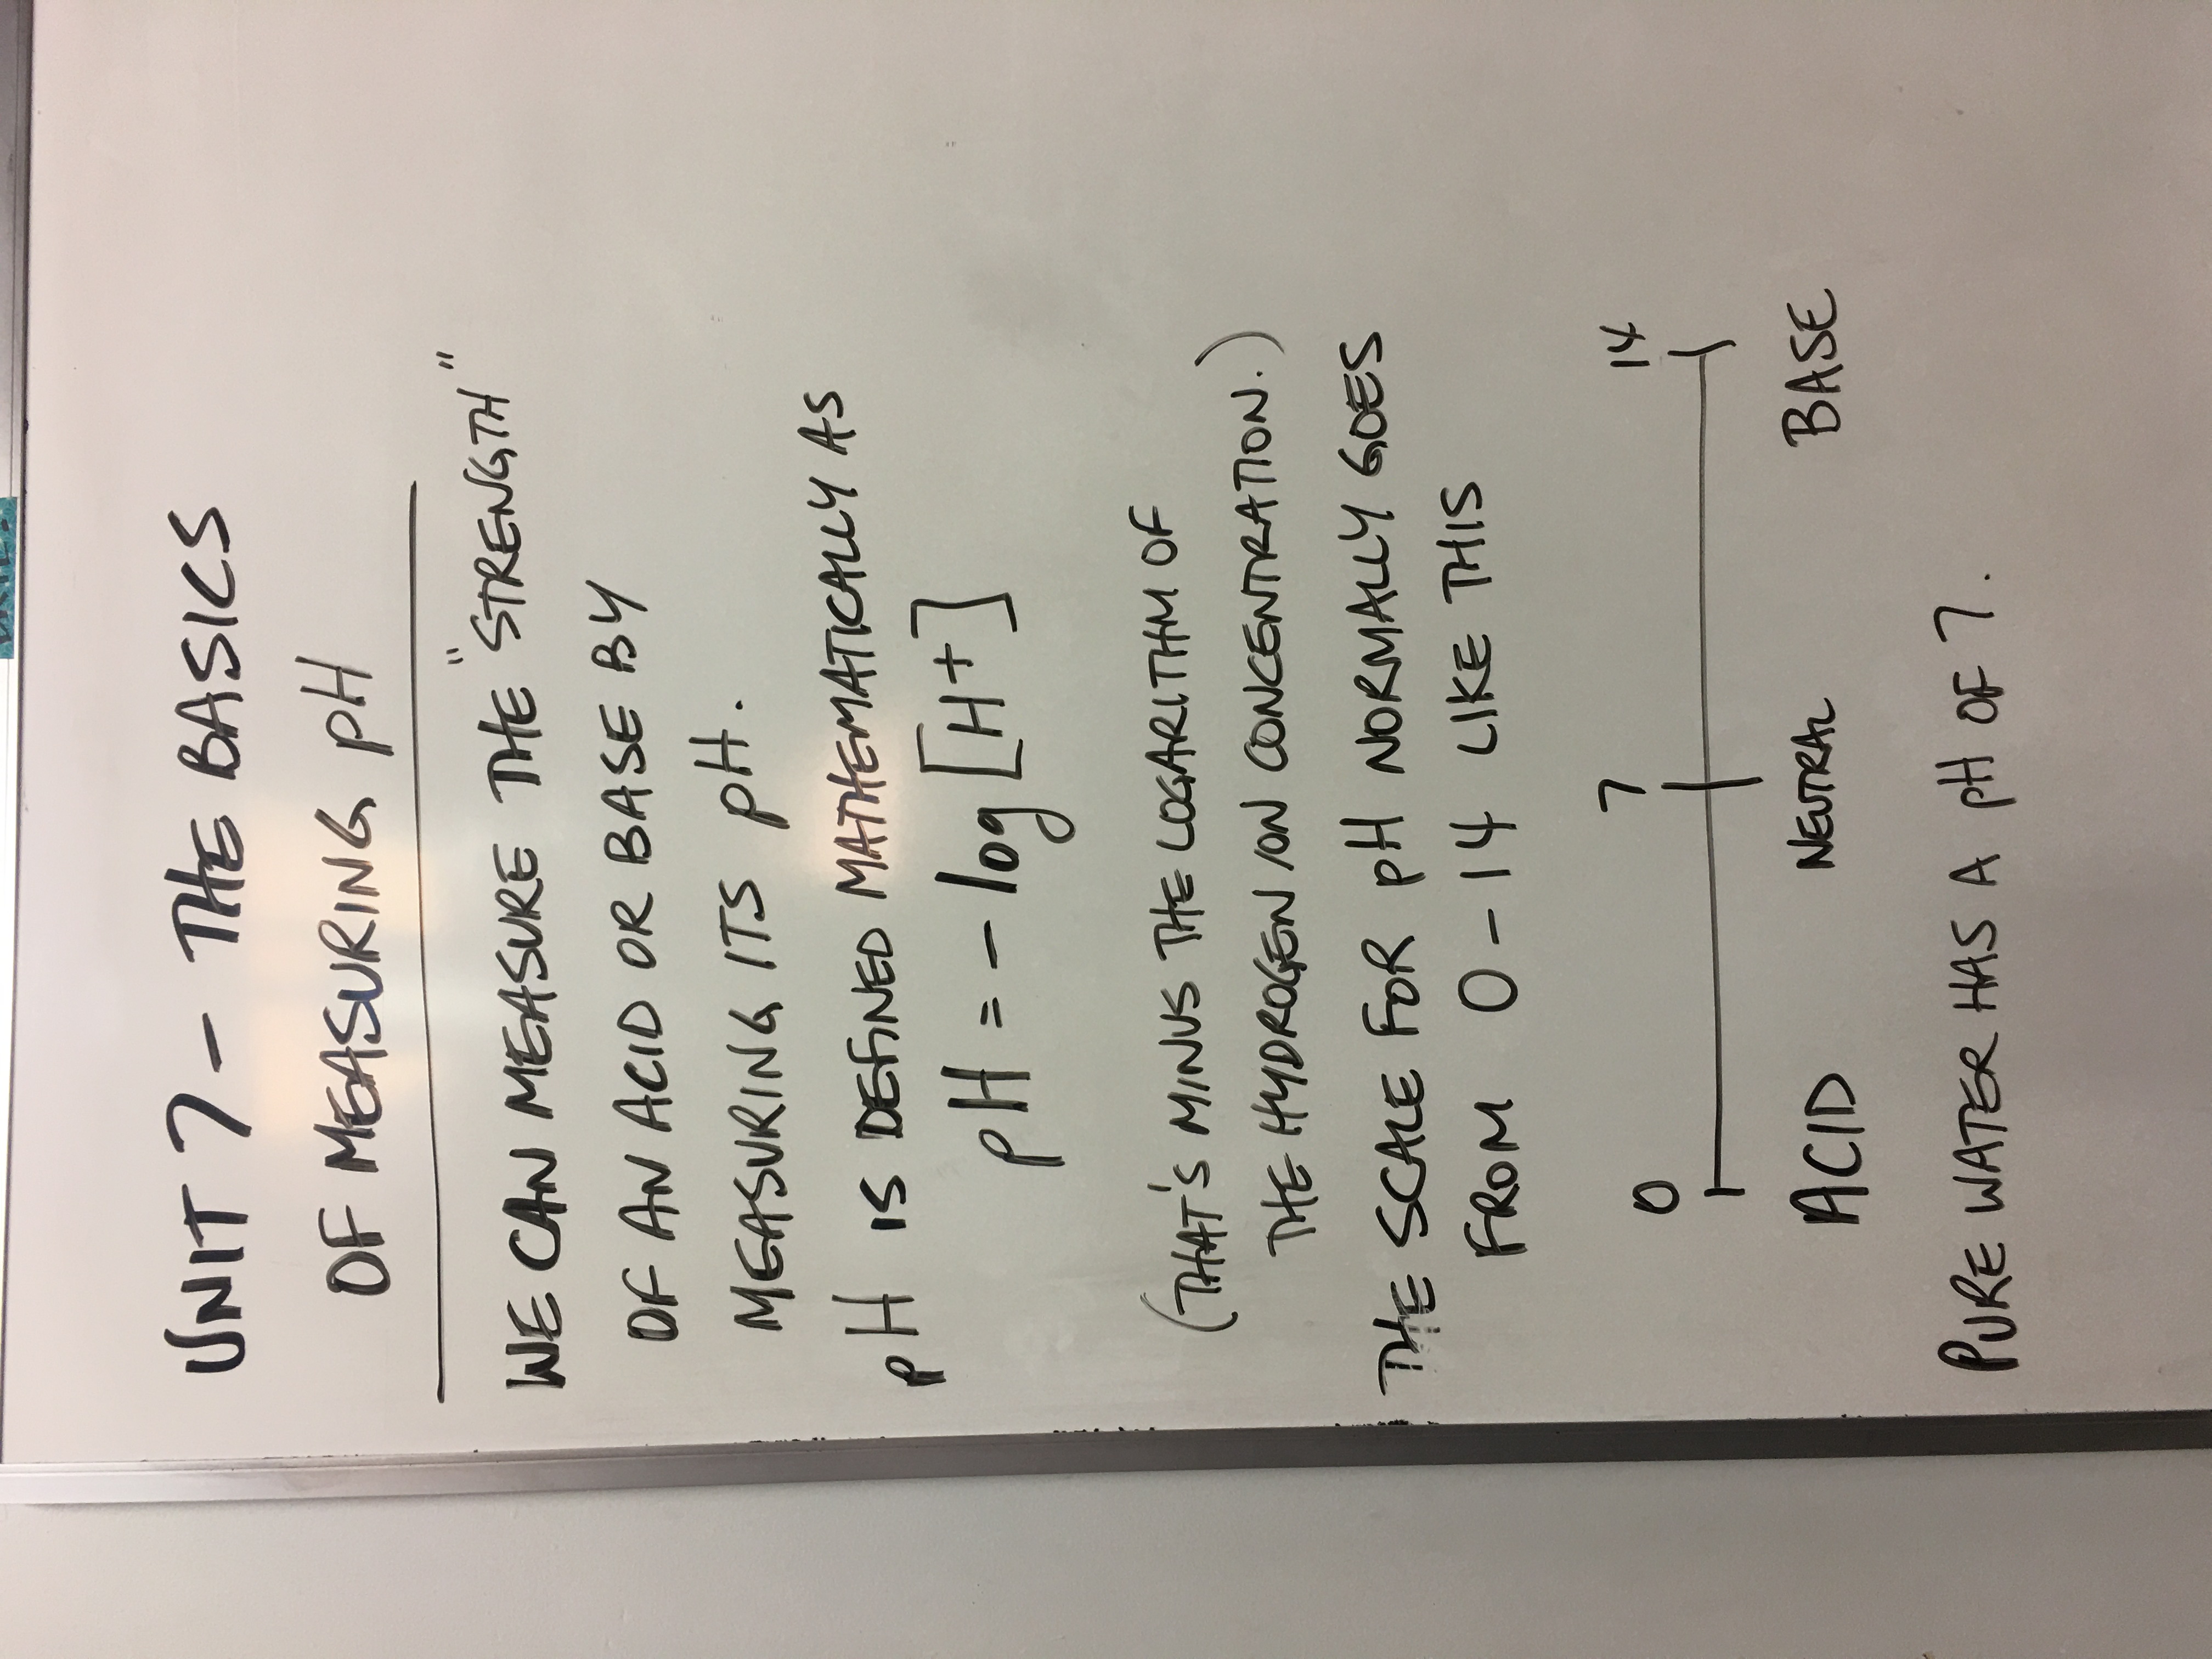 UNIT 7 - THE BASICS
OF MEASURING pH
WE CAN MEASURE THE "STRENGTH"
OF AN ACID OR BASE BY
MEASURING ITS pH.
pH IS DEFINED MATHEMATICALLY AS
pH = - log [H+]
(THAT'S MINUS THE LOGARITHM OF
THE HYDROGEN ION CONCENTRATION.)
THE SCALE FOR pH NORMALLY GOES
FROM 0 - 14 LIKE THIS
0 7 14
ACID NEUTRAL BASE
PURE WATER HAS A pH OF 7.